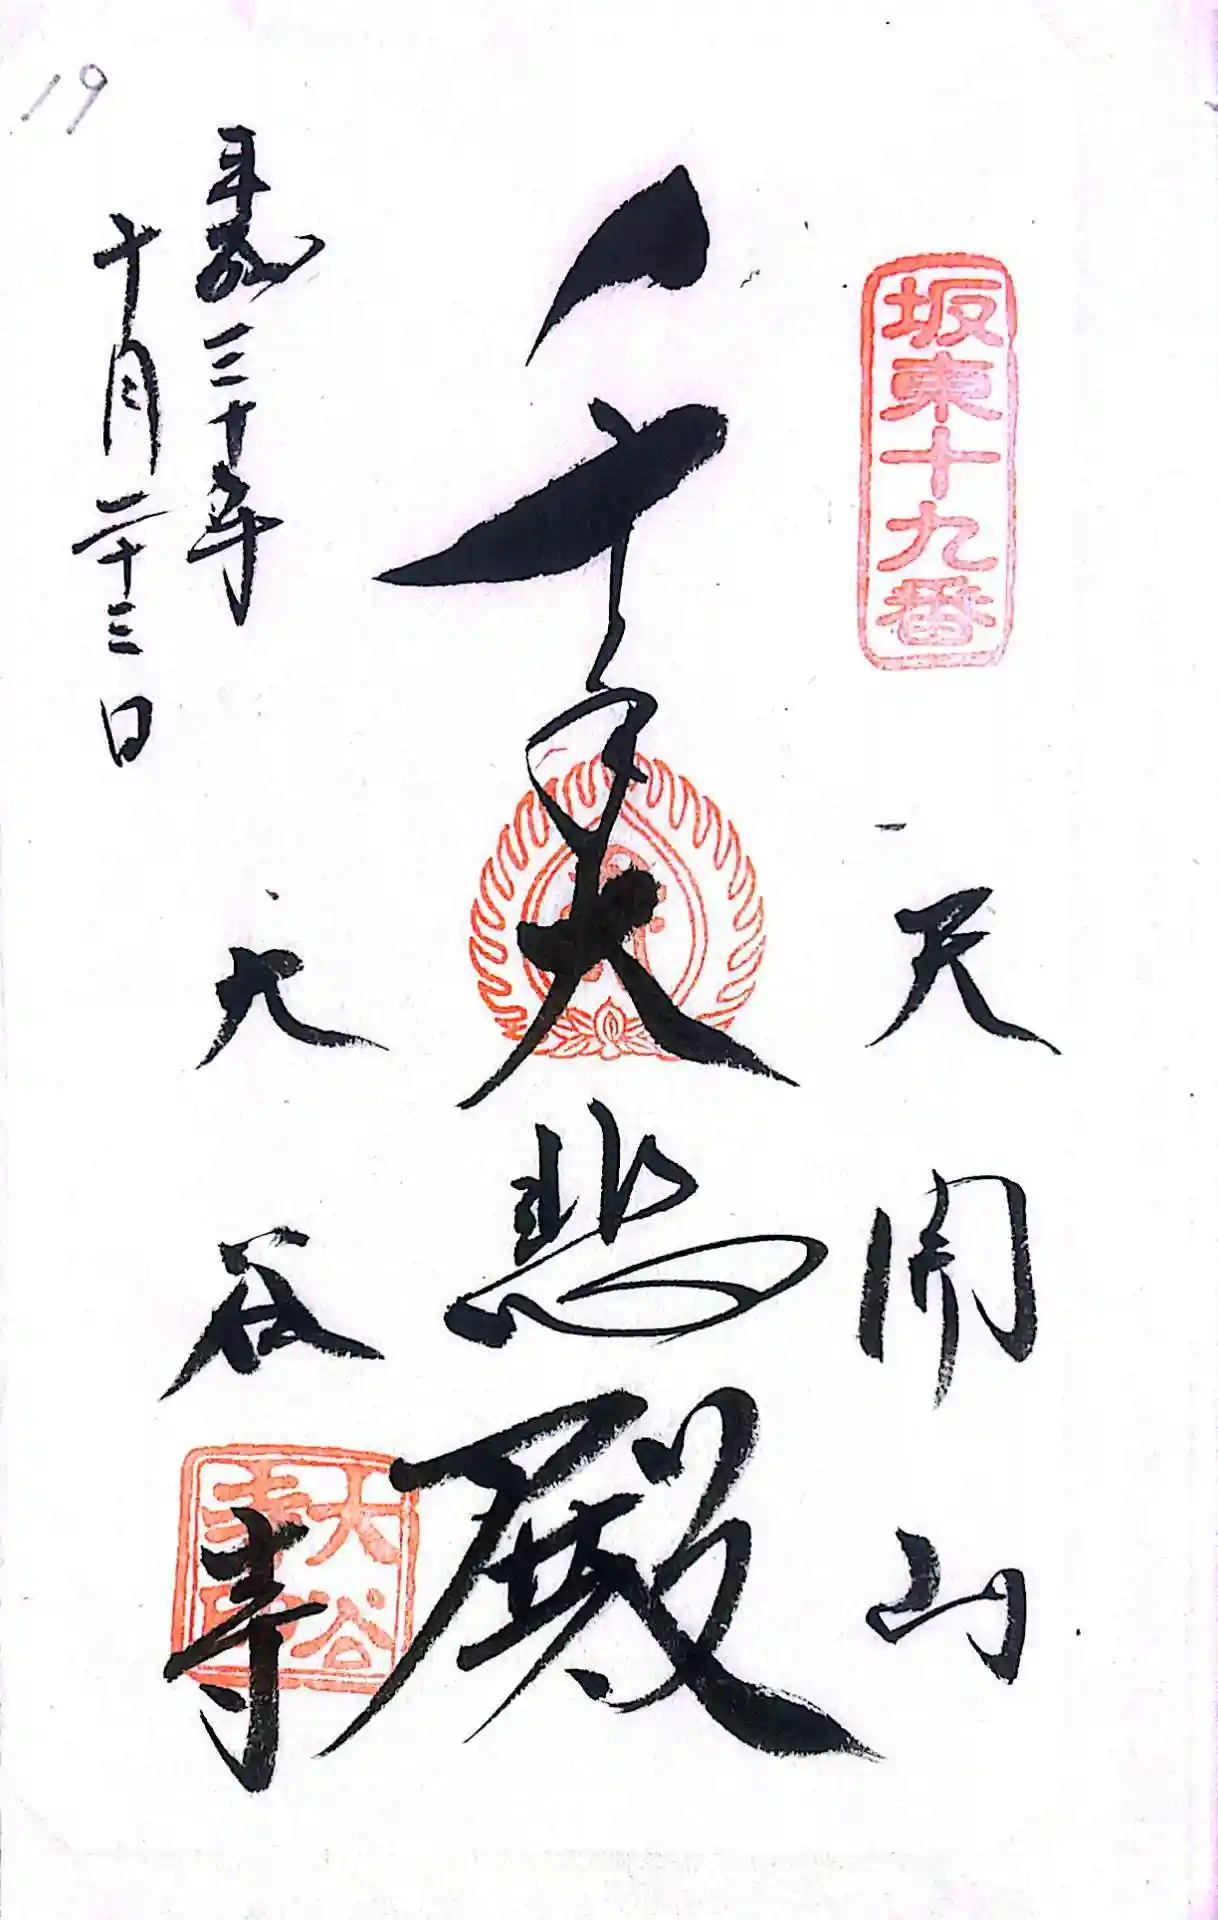 坂東十九番
天開山
千手大悲殿
平成三十年
十月二十三日
大谷寺
大谷
寺印
19